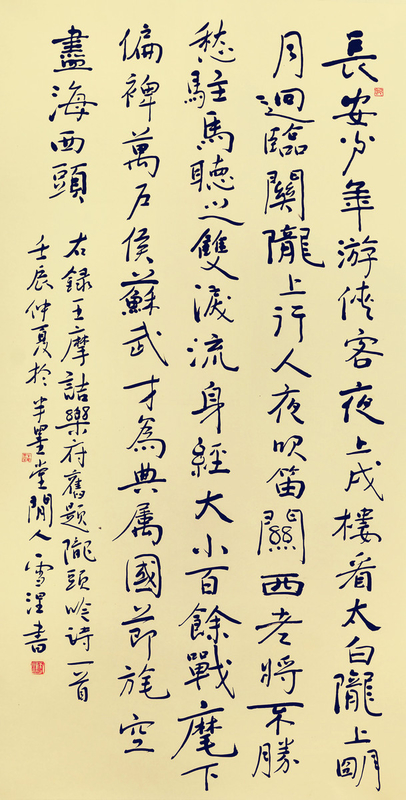 長安少年游俠客夜上戍樓看太白隴上朙
月迥臨關隴上行人夜吹笛關西老將不勝
愁駐馬聽之雙淚流身經大小百餘戰麾下
偏裨萬户侯蘇武才為典属國節旄空
盡海西頭
右録王摩詰樂府舊題隴頭吟詩一首
壬辰仲夏於半墨堂閒人雪書